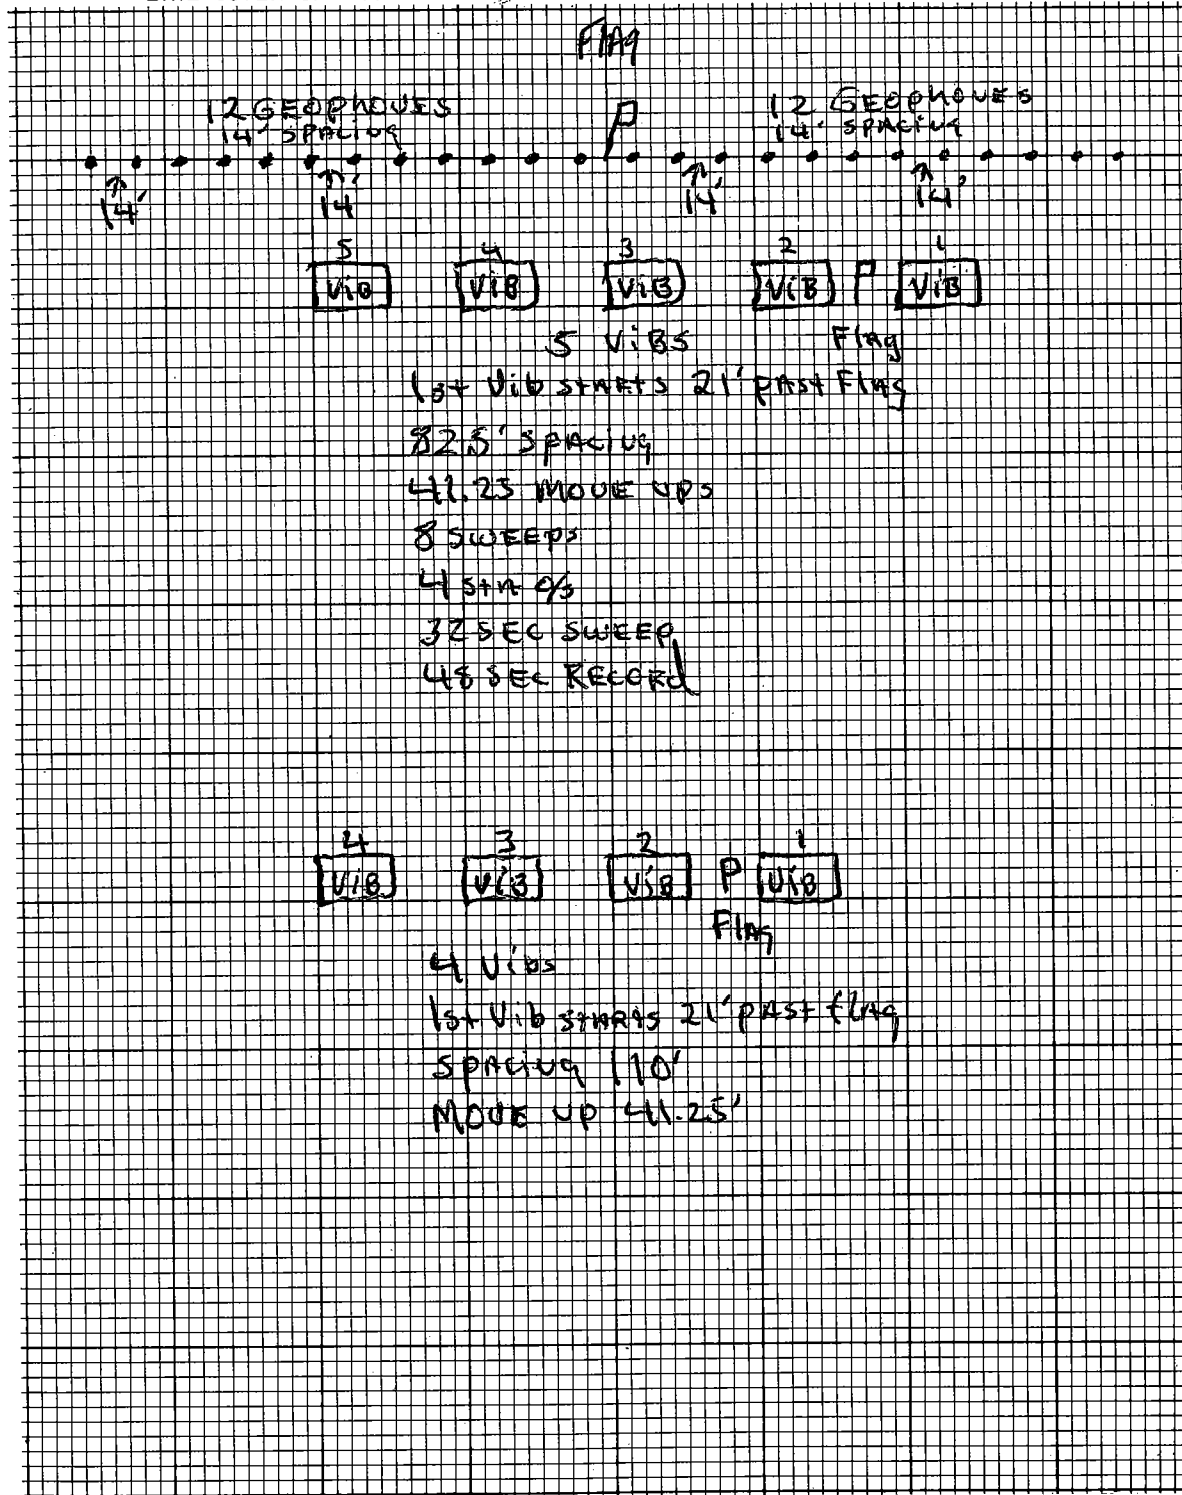 FlAg
12 GEOPHONES 12 GEOPHONES
14' SPACING 14' SPACING
14' 14' 14' 14'
5 4 3 2 1
ViB ViB ViB ViB ViB
5 ViBS Flag
1st Vib stArts 21' pAst FlAg
82.5' SpAciNg
41.25 MOVE UPS
8 SWEEPS
4 stn o/s
32 SEC SWEEP
48 SEC RECORd
4 3 2 1
ViB ViB ViB ViB
FlAg
4 Vibs
1st Vib stARts 21' pAst flAg
SpAciNg 110'
MOVE UP 41.25'